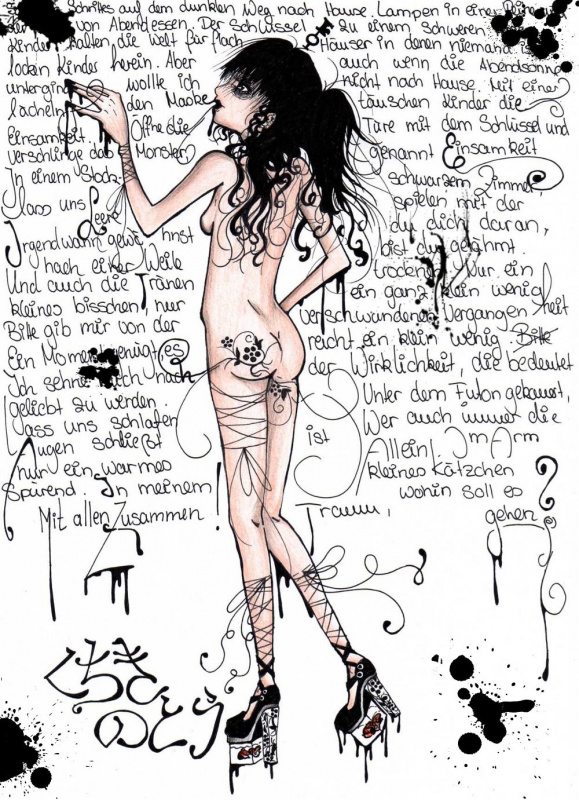 Schrittes auf dem dunklen Weg nach Hause Lampen in einer
von Abendessen. Der Schlüssel zu einem schweren
Kinder halten die Welt für flach Häuser in denen niemand ist
locken Kinder herein. Aber auch wenn die Abendsonne
unterging wollte ich nicht nach Hause. Mit einer
lächeln den Maske täuschen Kinder die
Einsamkeit. Öffne die Türe mit dem Schlüssel und
verschlinge das Monster, genannt Einsamkeit
In einem stock- schwarzem Zimmer,
lass uns spielen mit der
Leere du dich daran,
Irgendwann gewöhnst bist du gelähmt.
nach einer Weile
Und auch die Tränen trocknen. Nur ein
kleines bisschen, nur ein ganz klein wenig
Bitte gib mir von der verschwundenen Vergangenheit
Ein Moment genügt, es reicht ein klein wenig Bitte
Ich sehne mich nach der Wirklichkeit, die bedeutet
geliebt zu werden. Unter dem Futon gekauert,
lass uns schlafen Wer auch immer die
Augen schließt ist Allein! Im Arm
nur ein warmes kleines Kätzchen
Spürend. In meinem Traum, wohin soll es
Mit allen Zusammen! gehen?
くちき
のとう